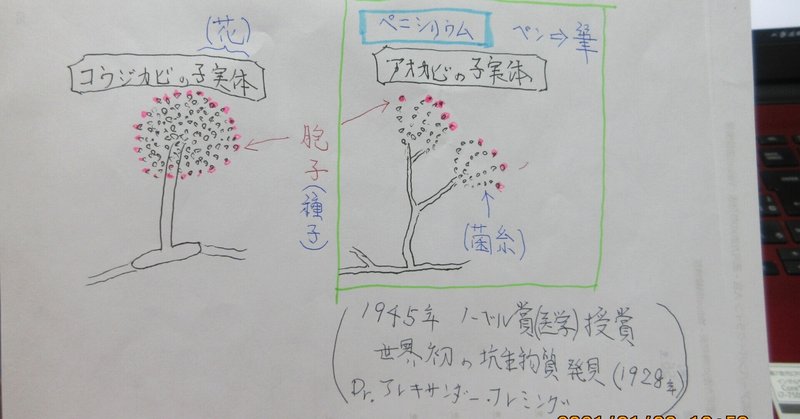 (花)
コウジカビの子実体
ペニシリウム
ペン⇒筆
アオカビの子実体
胞子(種子)
(菌糸)
1945年 ノーベル賞(医学)授賞
世界初の坑生物質発見(1928年)
Dr. アレキサンダー・フレミング